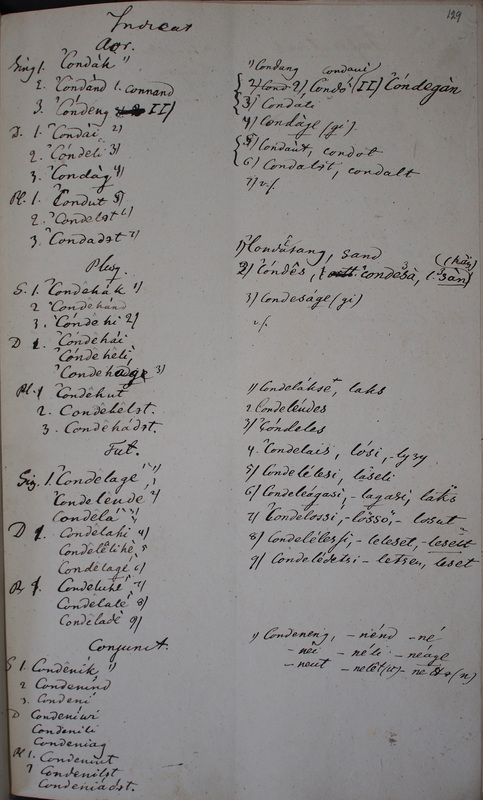 129
Indicat
Aor.
Sing 1. Condák 1)
2. Condánd 1. command
3. Condeng II)
D. 1. Condái 2)
2. Condeli 3)
3. Condág 4)
Pl. 1. Condut 5)
2. Condelst 6)
3. Condadst 7)
1) Condang condaui
2) Cond 2) Condó (II) Cóndegàn
3) Condali
4) Condàge (gi)
5) Condaut, condot
6) Condalst, condalt
7) v.
Plusq.
S. 1. Condehák 1)
2 Condehánd
3. Condehi 2)
D 1. Condehái
Condeheli,
Condehágе 3)
Pl. 1 Condehut
2. Condehélst.
3. Condehádst.
1) Condásang, sand
2) Cóndês, condesà, (sàn) (hàn)
3) Condeságe (gi)
v.
Fut.
Sing. 1. Condelage 1)
Condeleude 2)
Condéla 3)
D 1. Condélahi 4)
Condelélihé 5
Condelagé 6)
Pl 1. Condeluhé 7)
Condelaté 8)
Condeladé 9)
1) Condelákse, laks
2 Condeléudes
3) Cóndeles
4. Condelais, lósi, - lyzy
5) Condelélesi, láseli
6) Condeleágasi, - lagasi, laks
7) Condelossi, - lósso, - losut
8) Condelélessi, - leleset, - leselt
9) Condelédetsi - letsen, leset
Conjunct.
S 1. Condenik, 1)
2 Condenind
3. Condení
D Condeniwi
Condenili
Condeniag
Pl 1. Condeniut
Condenilst
Condeniádst.
1) Condeneng, - nénd - né
- nei - néli - néáge
- neut - nelét(u)